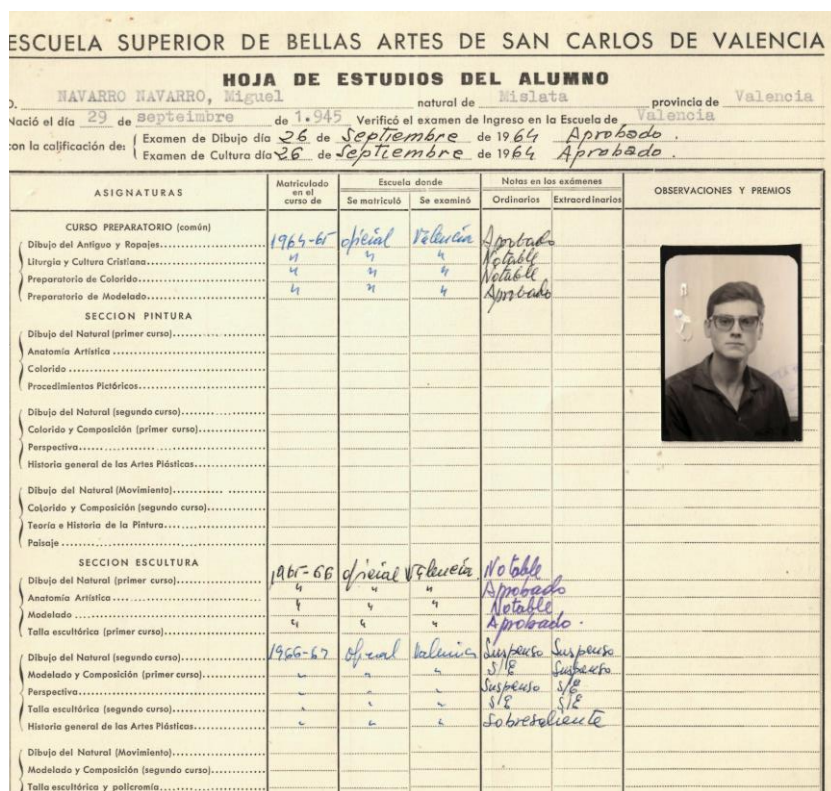 ESCUELA SUPERIOR DE BELLAS ARTES DE SAN CARLOS DE VALENCIA
HOJA DE ESTUDIOS DEL ALUMNO
D. NAVARRO NAVARRO, Miguel natural de Mislata provincia de Valencia
Nació el día 29 de septeimbre de 1.945 Verificó el examen de Ingreso en la Escuela de Valencia
con la calificación de: Examen de Dibujo día 26 de Septiembre de 1964 Aprobado.
Examen de Cultura día 26 de Septiembre de 1964 Aprobado.
ASIGNATURAS Matriculado en el curso de Escuela donde Se matriculó Se examinó Notas en los exámenes Ordinarios Extraordinarios OBSERVACIONES Y PREMIOS
CURSO PREPARATORIO (común)
Dibujo del Antiguo y Ropajes 1964-65 oficial Valencia Aprobado
Liturgia y Cultura Cristiana " " " Notable
Preparatorio de Colorido " " " Notable
Preparatorio de Modelado " " " Aprobado
SECCION PINTURA
Dibujo del Natural (primer curso)
Anatomía Artística
Colorido
Procedimientos Pictóricos
Dibujo del Natural (segundo curso)
Colorido y Composición (primer curso)
Perspectiva
Historia general de las Artes Plásticas
Dibujo del Natural (Movimiento)
Colorido y Composición (segundo curso)
Teoría e Historia de la Pintura
Paisaje
SECCION ESCULTURA
Dibujo del Natural (primer curso) 1965-66 oficial Valencia Notable
Anatomía Artística " " " Aprobado
Modelado " " " Notable
Talla escultórica (primer curso) " " " Aprobado.
Dibujo del Natural (segundo curso) 1966-67 oficial Valencia Suspenso Suspenso
Modelado y Composición (primer curso) " " " S/E Suspenso
Perspectiva " " " Suspenso S/E
Talla escultórica (segundo curso) " " " S/E S/E
Historia general de las Artes Plásticas " " " Sobresaliente
Dibujo del Natural (Movimiento)
Modelado y Composición (segundo curso)
Talla escultórica y policromía